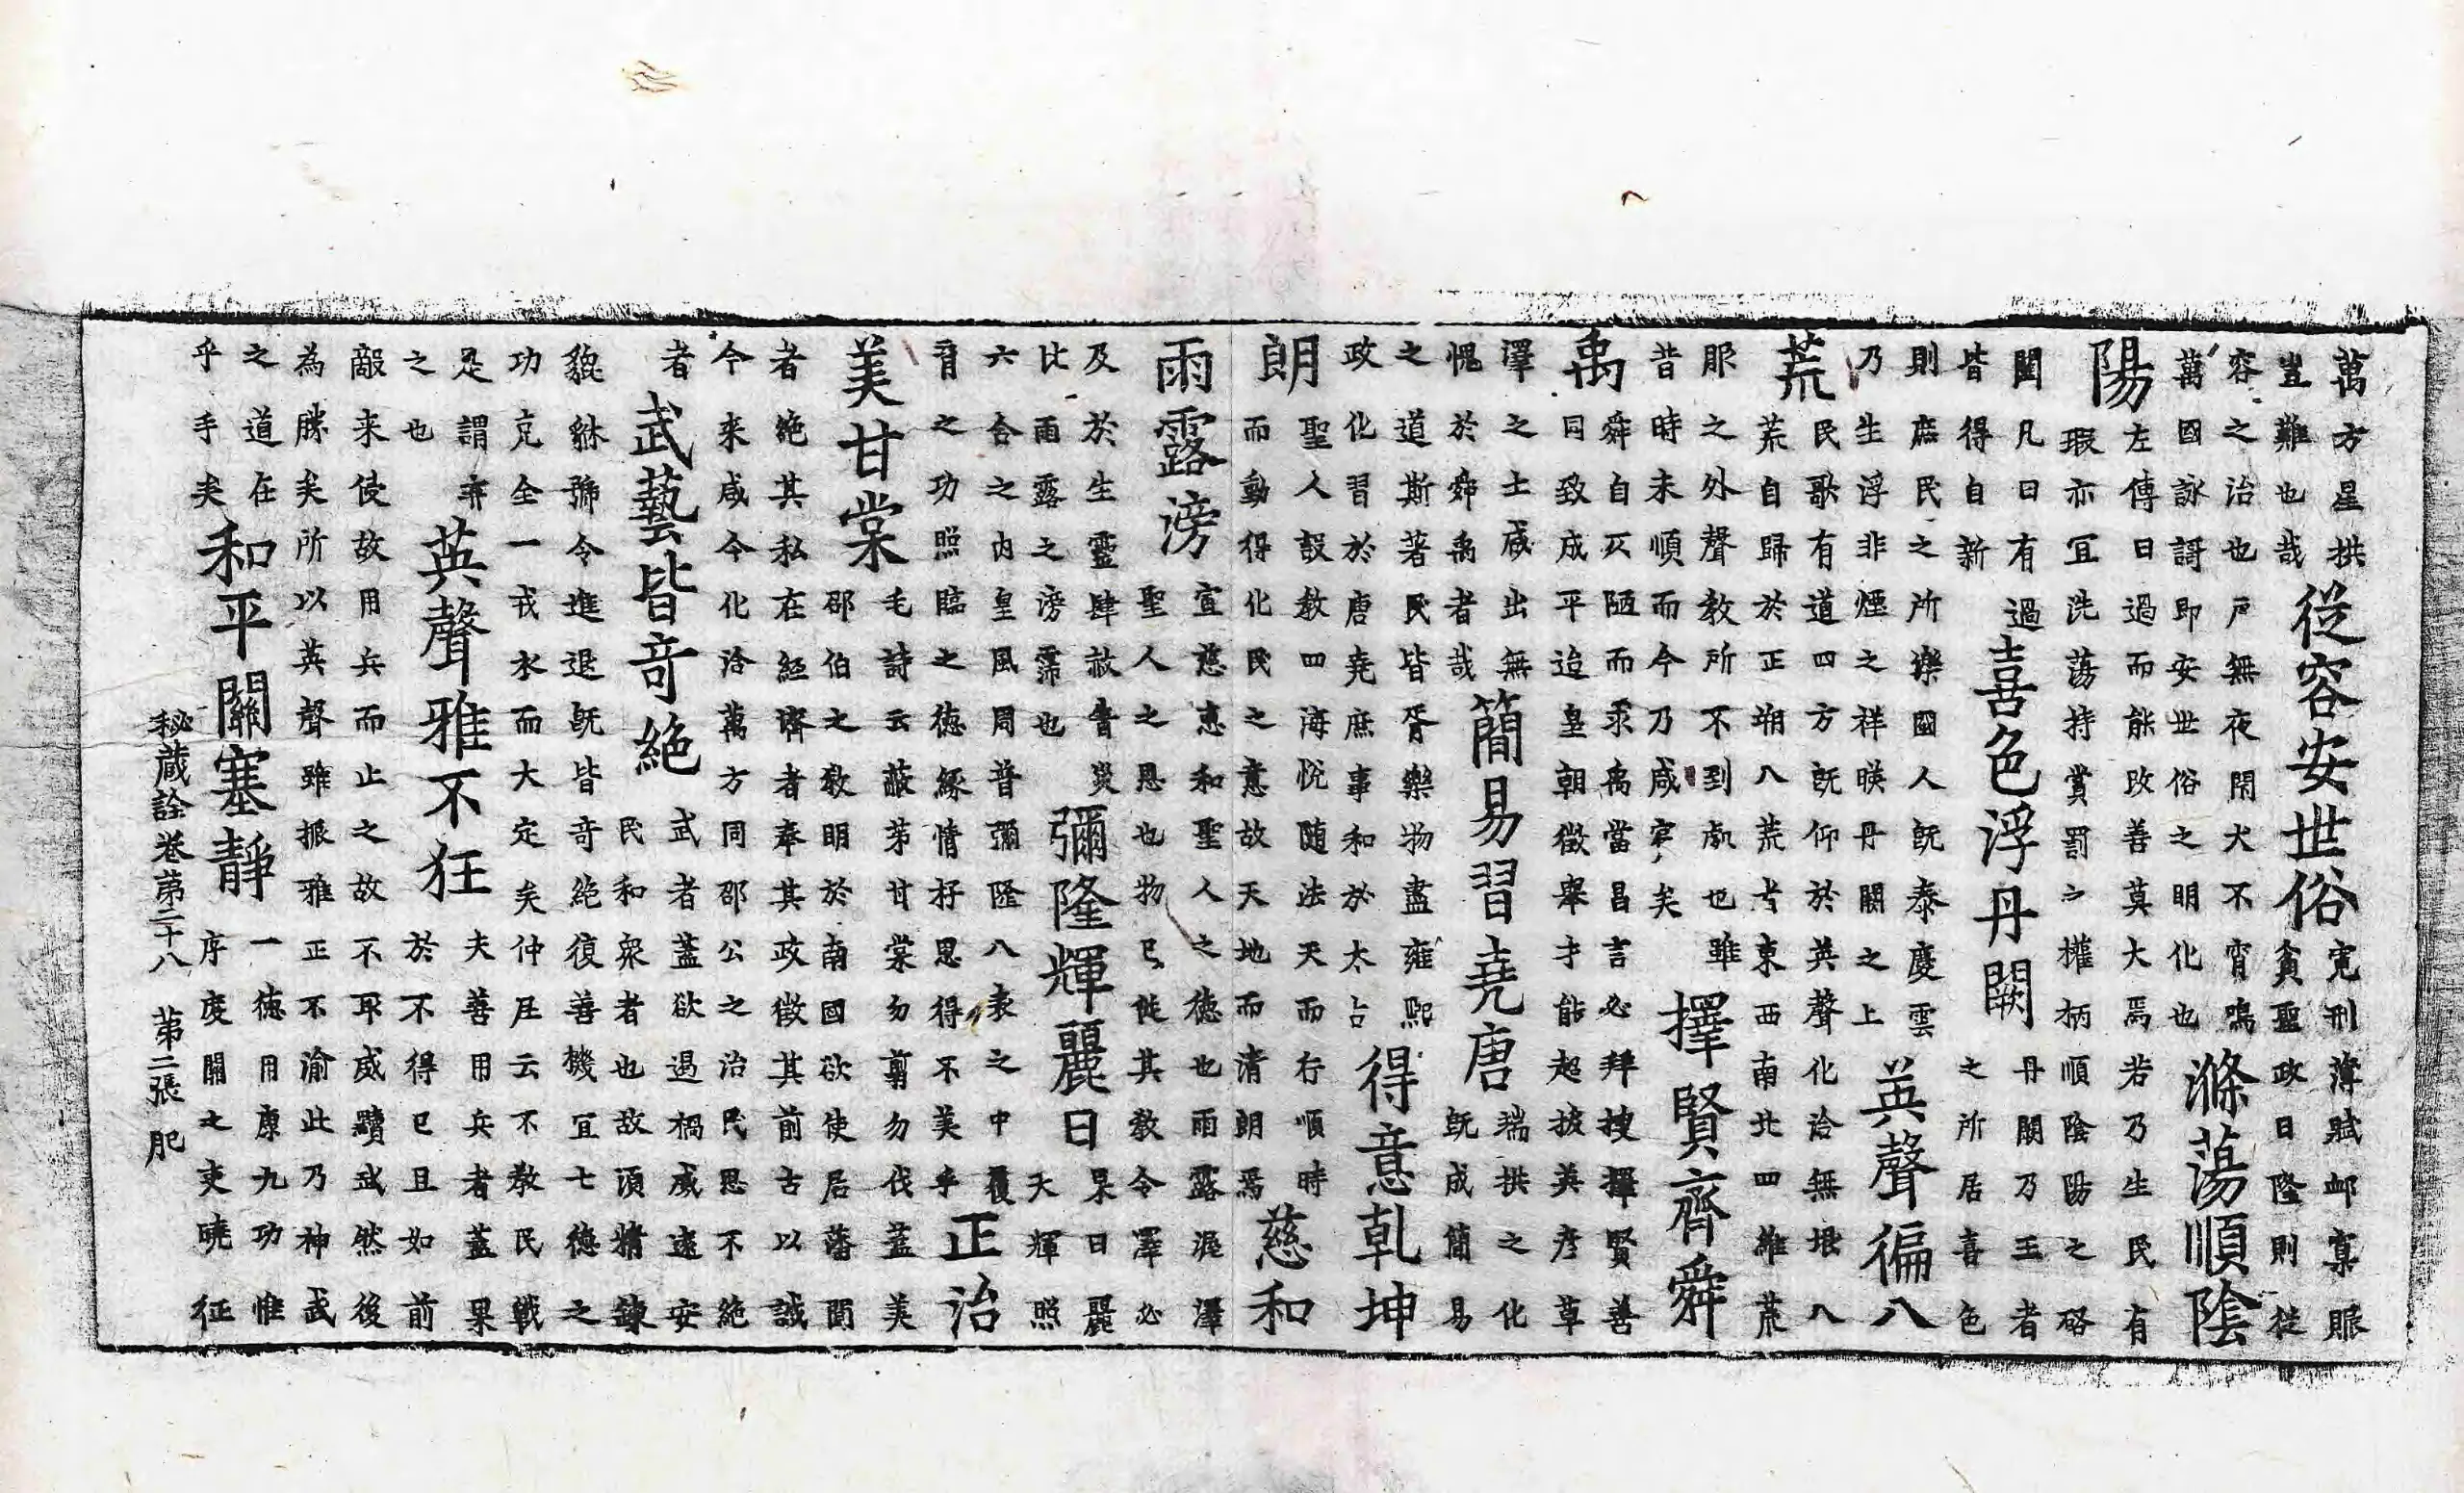 萬方星拱
豈難也哉
從容安世俗
寬刑薄賦卹寡賑
貪聖政日隆則從
容之治也戶無夜閑犬不宵鳴
萬國詠謌即安世俗之明化也
滌蕩順陰
陽
左傳曰過而能改善莫大焉若乃生民有
瑕亦宜洗蕩持賞罰之權柄順陰陽之硌
闔凡日有過
皆得自新
喜色浮丹闕
丹闕乃王者
之所居喜色
則庶民之所樂國人既泰慶雲
乃生浮非煙之祥暎丹闕之上
英聲徧八
荒
民歌有道四方既仰於英聲化洽無垠八
荒自歸於正朔八荒者東西南北四維荒
服之外聲教所不到處也雖
昔時未順而今乃咸賓矣
擇賢齊舜
禹
舜自仄陋而承禹當昌言必拜搜擇賢善
同致成平迨皇朝徵舉才能超披英彥草
澤之士咸出無
愧於舜禹者哉
簡易習堯唐
端拱之化
既成簡易
之道斯著民皆胥樂物盡雍熙
政化習於唐堯庶事和於太古
得意乾坤
朗
聖人設教四海悅隨法天而行順時
而動得化民之意故天地而清朗焉
慈和
雨露滂
宣慈惠和聖人之德也雨露渥澤
聖人之恩也物已陡其教令澤必
及於生靈肆赦眚災
比雨露之滂霈也
彌隆輝麗日
杲日麗
天輝照
六合之內皇風周普彌隆八表之中覆
育之功照臨之德緣情杍思得不美乎
正治
美甘棠
毛詩云蔽芾甘棠勿翦勿伐蓋美
邵伯之教明於南國欲使居藩閫
者絶其私在經濟者奉其政徵其前古以誠
今来咸令化洽萬方同邵公之治民思不絶
者
武藝皆竒絶
武者蓋欲遏禍威遠安
民和衆者也故須精錬
貔貅號令進退既皆竒絶復善機宜七德之
功克全一戎衣而大定矣仲尼云不教民戰
是謂棄
之也
英聲雅不狂
夫善用兵者蓋果
於不得已且如前
敵来侵故用兵而止之故不取威黷武然後
為勝矣所以英聲雖振雅正不渝此乃神武
之道在
乎手矣
和平關塞靜
一德用康九功惟
序度關之吏曉征
秘藏詮卷苐二十八　苐二張　肥